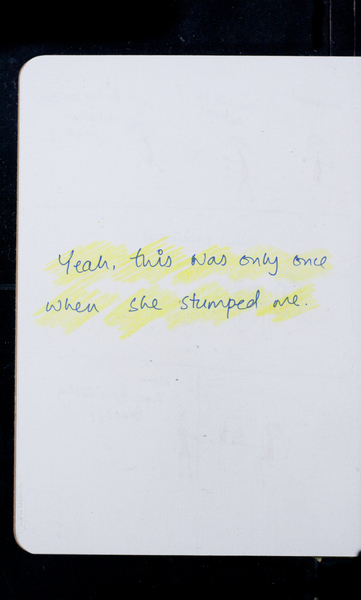 Yeah, this was only once
when she stumped me.